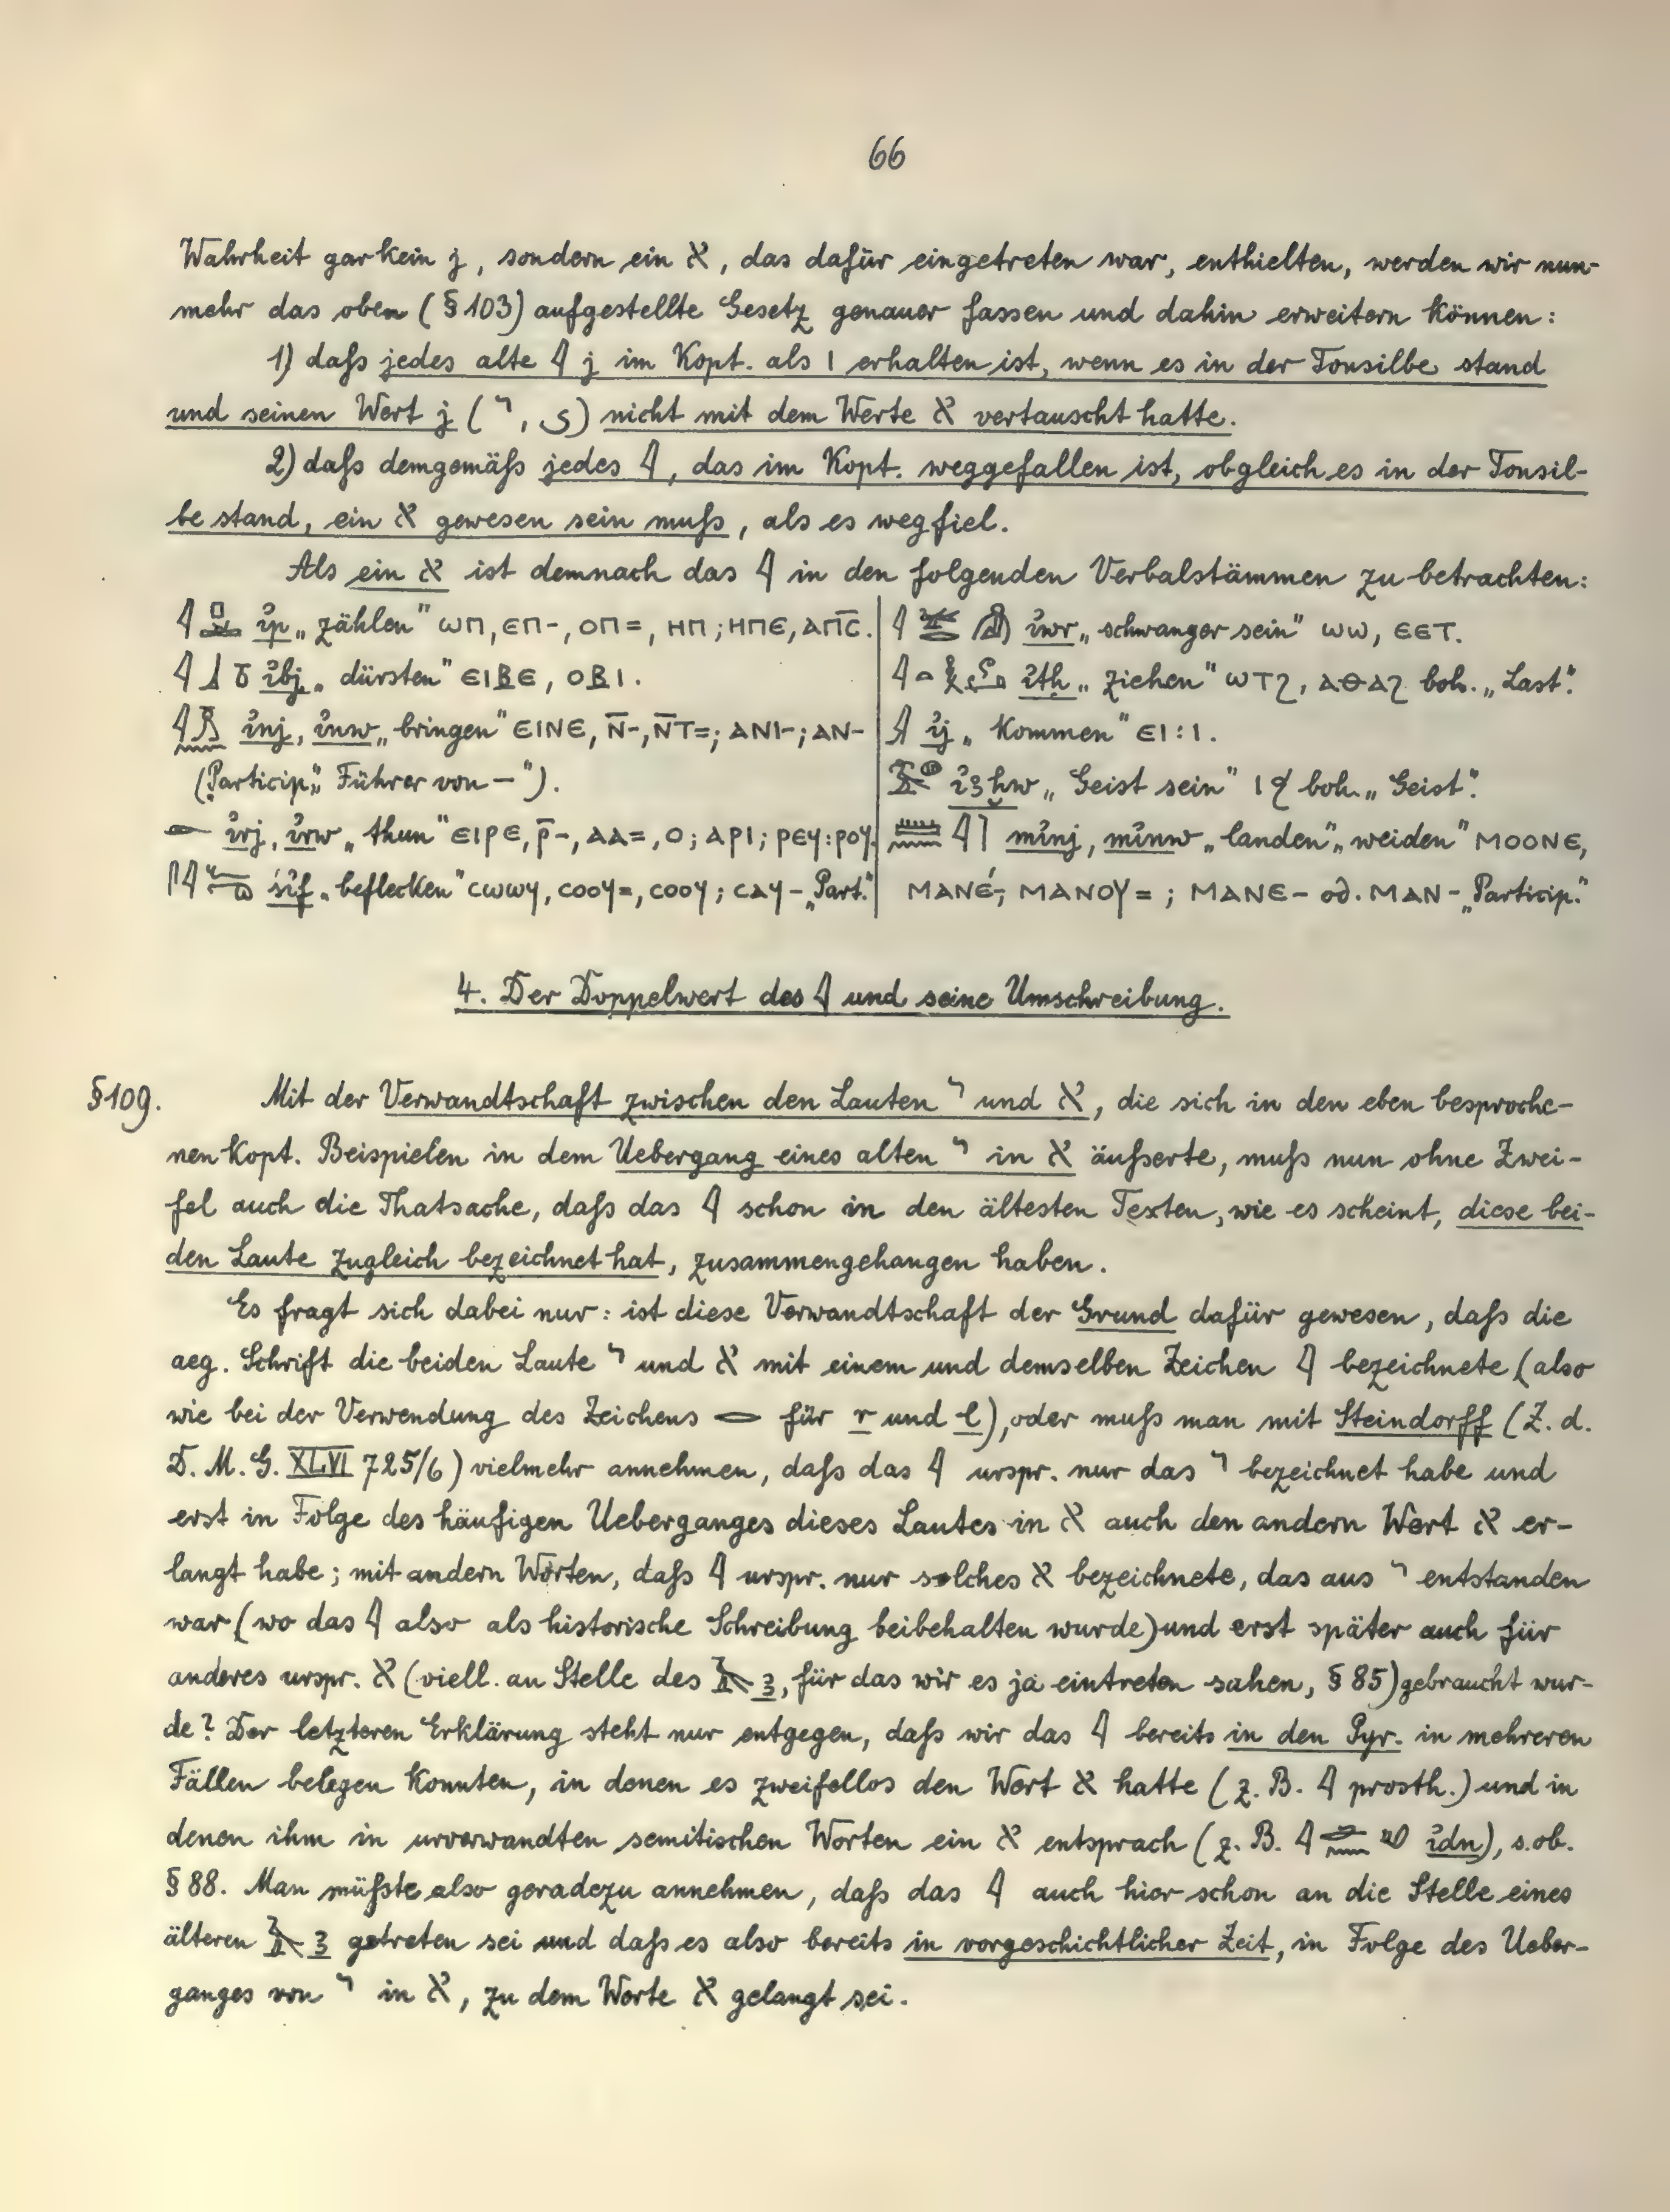 66
Wahrheit gar kein j, sondern ein א, das dafür eingetreten war, enthielten, werden wir nun-
mehr das oben (§ 103) aufgestellte Gesetz genauer fassen und dahin erweitern können:
1) daſs jedes alte 𓇋 j im Kopt. als ⲓ erhalten ist, wenn es in der Tonsilbe stand
und seinen Wert j (י, ى) nicht mit dem Werte א vertauscht hatte.
2) daſs demgemäſs jedes 𓇋, das im Kopt. weggefallen ist, obgleich es in der Tonsil-
be stand, ein א gewesen sein muſs, als es wegfiel.
Als ein א ist demnach das 𓇋 in den folgenden Verbalstämmen zu betrachten:
ỉp „zählen" ⲱⲡ, ⲉⲡ-, ⲟⲡ=, ⲏⲡ; ⲏⲡⲉ, ⲁⲡ̅ⲥ̅.
ỉbj „dürsten" ⲉⲓⲃⲉ, ⲟⲃⲓ.
ỉnj, ỉnw „bringen" ⲉⲓⲛⲉ, ⲛ̅-, ⲛ̅ⲧ=; ⲁⲛⲓ-; ⲁⲛ-
(Particip. „Führer von —").
ỉrj, ỉrw „thun" ⲉⲓⲣⲉ, ⲣ̅-, ⲁⲁ=, ⲟ; ⲁⲣⲓ; ⲣⲉϥ:ⲣⲟϥ.
śỉf „beflecken" ⲥⲱⲱϥ, ⲥⲟⲟϥ=, ⲥⲟⲟϥ; ⲥⲁϥ- „Part."
ỉwr „schwanger sein" ⲱⲱ, ⲉⲉⲧ.
ỉtḥ „ziehen" ⲱⲧϩ, ⲁⲑⲁϩ boh. „Last".
ỉj „kommen" ⲉⲓ:ⲓ.
ỉꜣḫw „Geist sein" ⲓϧ boh. „Geist".
mỉnj, mỉnw „landen", „weiden" ⲙⲟⲟⲛⲉ,
ⲙⲁⲛⲉ́-, ⲙⲁⲛⲟⲩ=; ⲙⲁⲛⲉ- od. ⲙⲁⲛ- „Particip."
4. Der Doppelwert des 𓇋 und seine Umschreibung.
§ 109. Mit der Verwandtschaft zwischen den Lauten י und א, die sich in den eben besproche-
nen kopt. Beispielen in dem Uebergang eines alten י in א äuſserte, muſs nun ohne Zwei-
fel auch die Thatsache, daſs das 𓇋 schon in den ältesten Texten, wie es scheint, diese bei-
den Laute zugleich bezeichnet hat, zusammengehangen haben.
Es fragt sich dabei nur: ist diese Verwandtschaft der Grund dafür gewesen, daſs die
aeg. Schrift die beiden Laute י und א mit einem und demselben Zeichen 𓇋 bezeichnete (also
wie bei der Verwendung des Zeichens 𓂋 für r und l), oder muſs man mit Steindorff (Z. d.
D. M. G. XLVI 725/6) vielmehr annehmen, daſs das 𓇋 urspr. nur das י bezeichnet habe und
erst in Folge des häufigen Ueberganges dieses Lautes in א auch den andern Wert א er-
langt habe; mit andern Worten, daſs 𓇋 urspr. nur solches א bezeichnete, das aus י entstanden
war (wo das 𓇋 also als historische Schreibung beibehalten wurde) und erst später auch für
anderes urspr. א (viell. an Stelle des 𓄿 ꜣ, für das wir es ja eintreten sahen, § 85) gebraucht wur-
de? Der letzteren Erklärung steht nur entgegen, daſs wir das 𓇋 bereits in den Pyr. in mehreren
Fällen belegen konnten, in denen es zweifellos den Wert א hatte (z. B. 𓇋 prosth.) und in
denen ihm in urverwandten semitischen Worten ein א entsprach (z. B. ỉdn), s. ob.
§ 88. Man müſste also geradezu annehmen, daſs das 𓇋 auch hier schon an die Stelle eines
älteren 𓄿 ꜣ getreten sei und daſs es also bereits in vorgeschichtlicher Zeit, in Folge des Ueber-
ganges von י in א, zu dem Werte א gelangt sei.